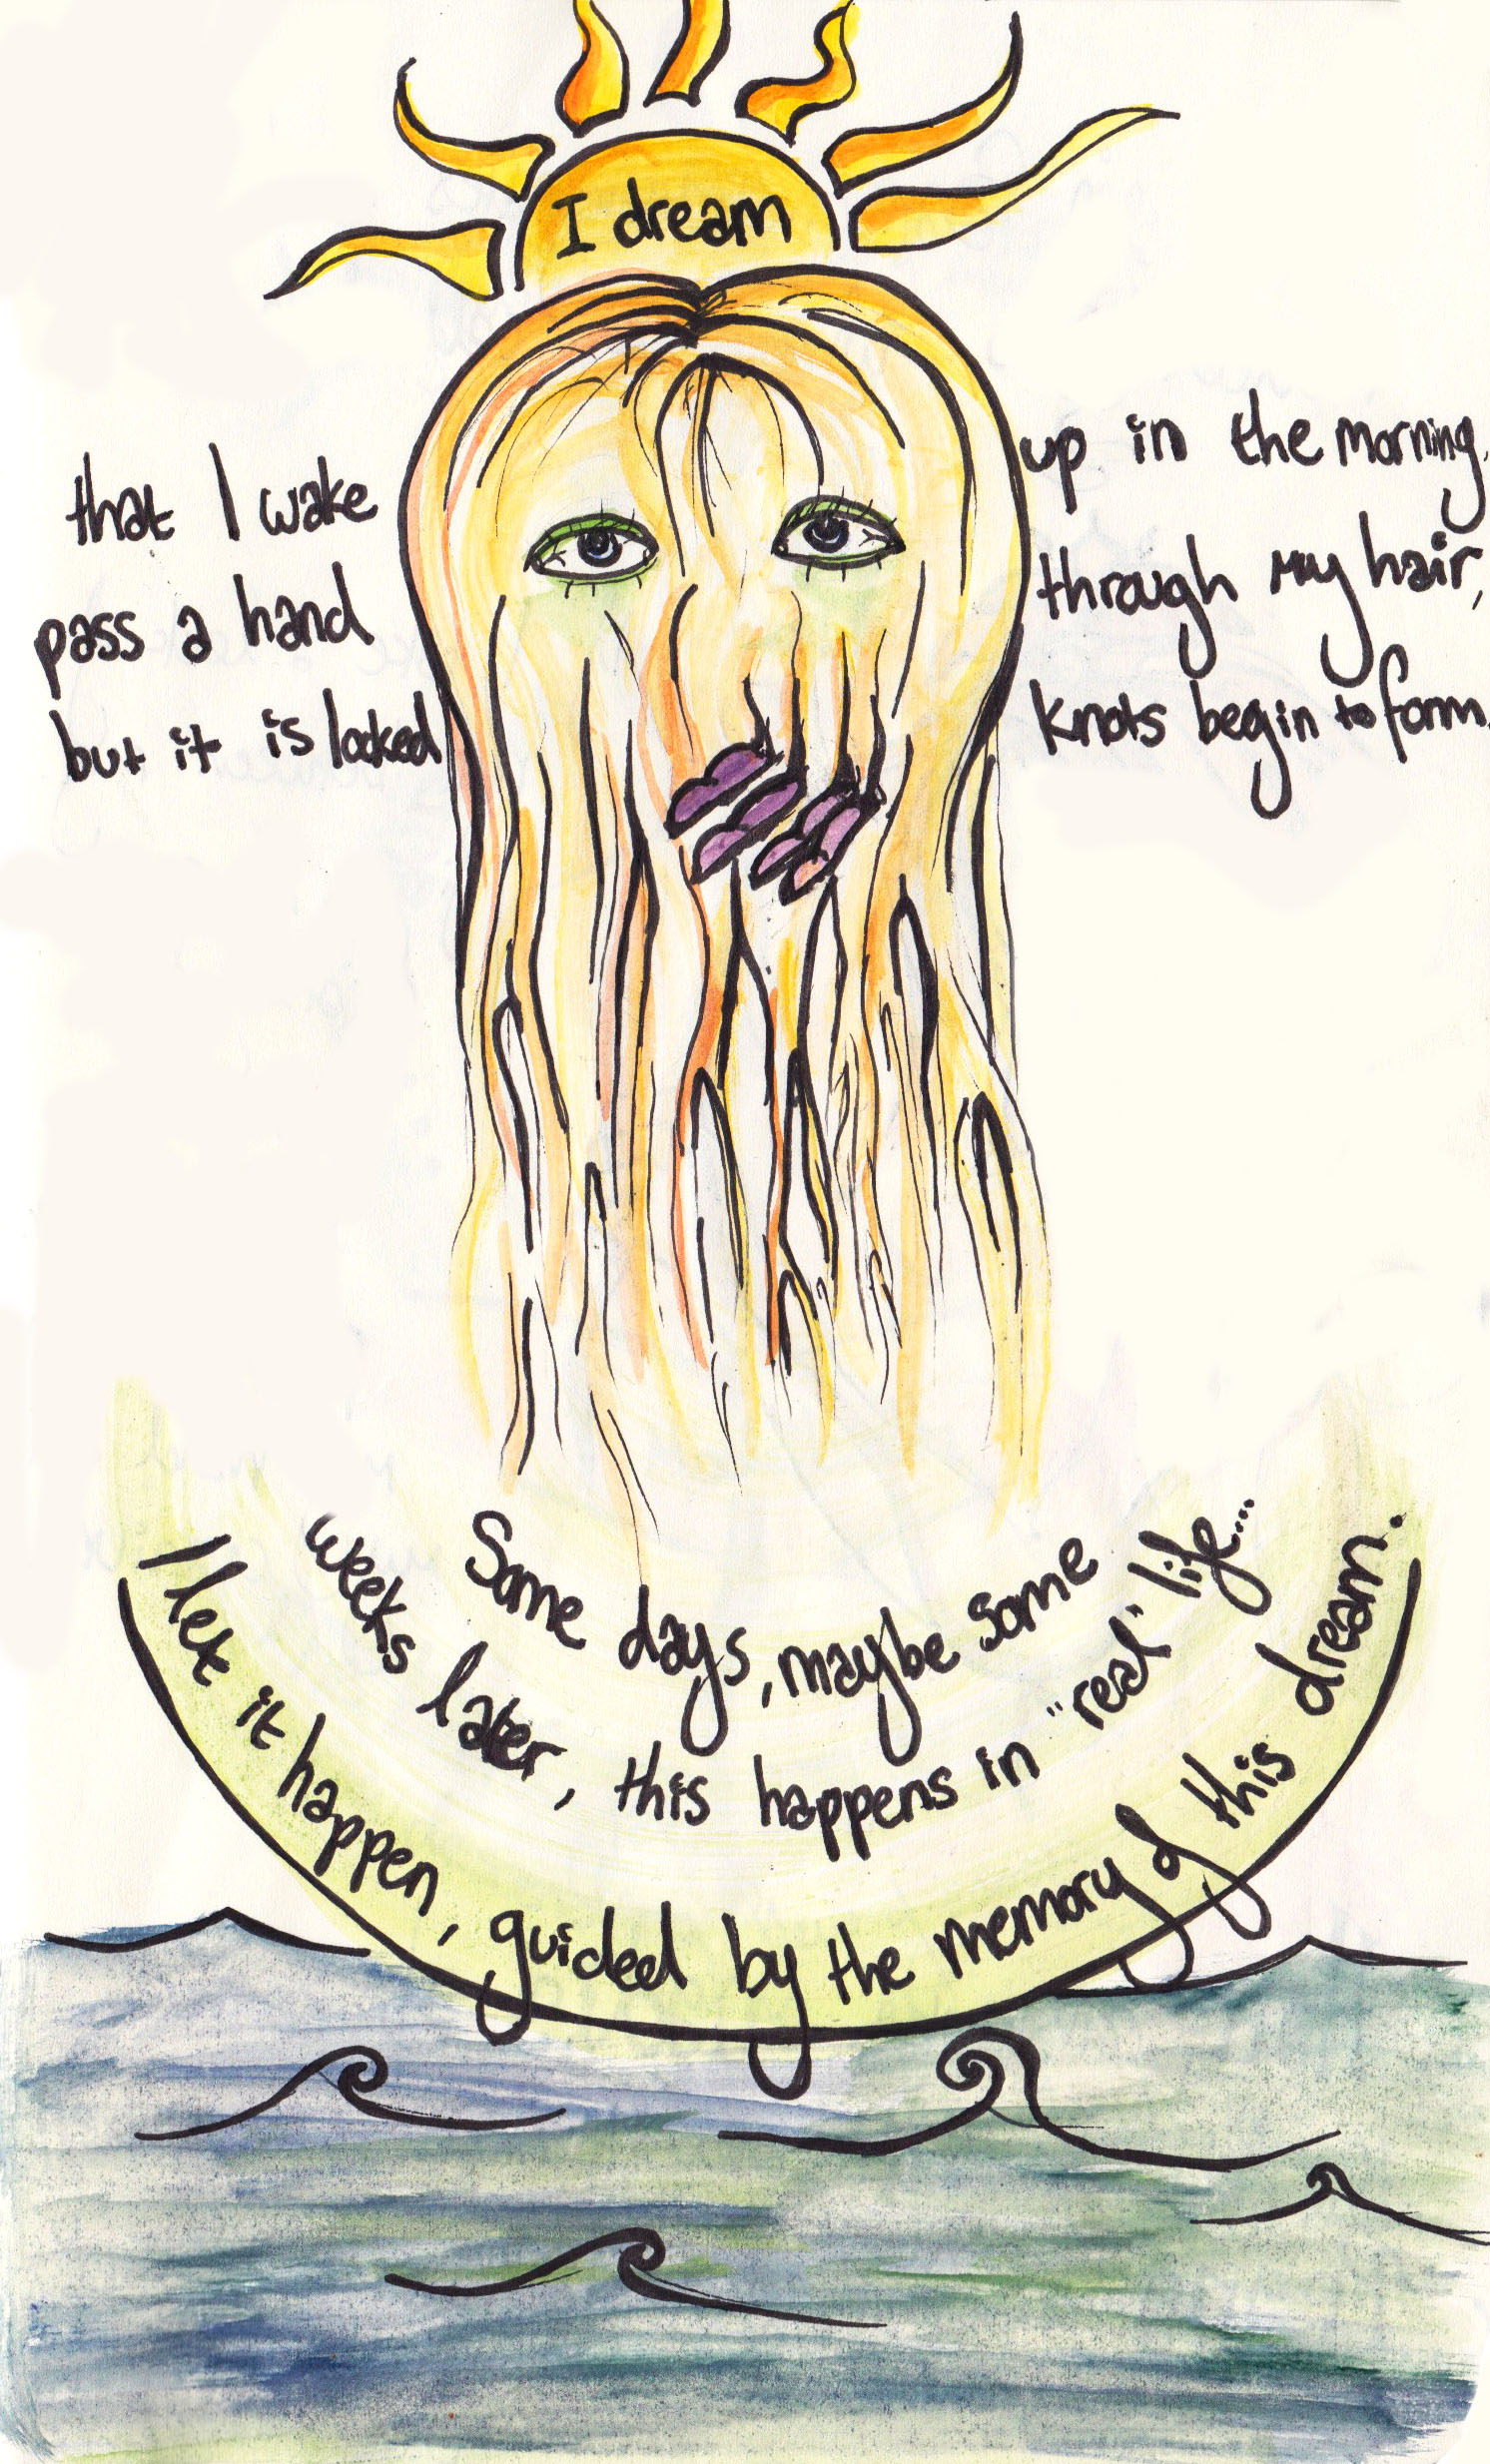 I dream
that I wake up in the morning,
pass a hand through my hair,
but it is locked knots begin to form.
Some days, maybe some
weeks later, this happens in "real" life....
I let it happen, guided by the memory of this dream.